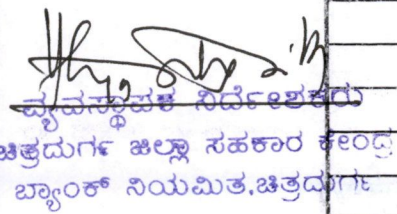 ವ್ಯವಸ್ಥಾಪಕ ನಿರ್ದೇಶಕರು
ಚಿತ್ರದುರ್ಗ ಜಿಲ್ಲಾ ಸಹಕಾರ ಕೇಂದ್ರ
ಬ್ಯಾಂಕ್ ನಿಯಮಿತ,ಚಿತ್ರದುರ್ಗ